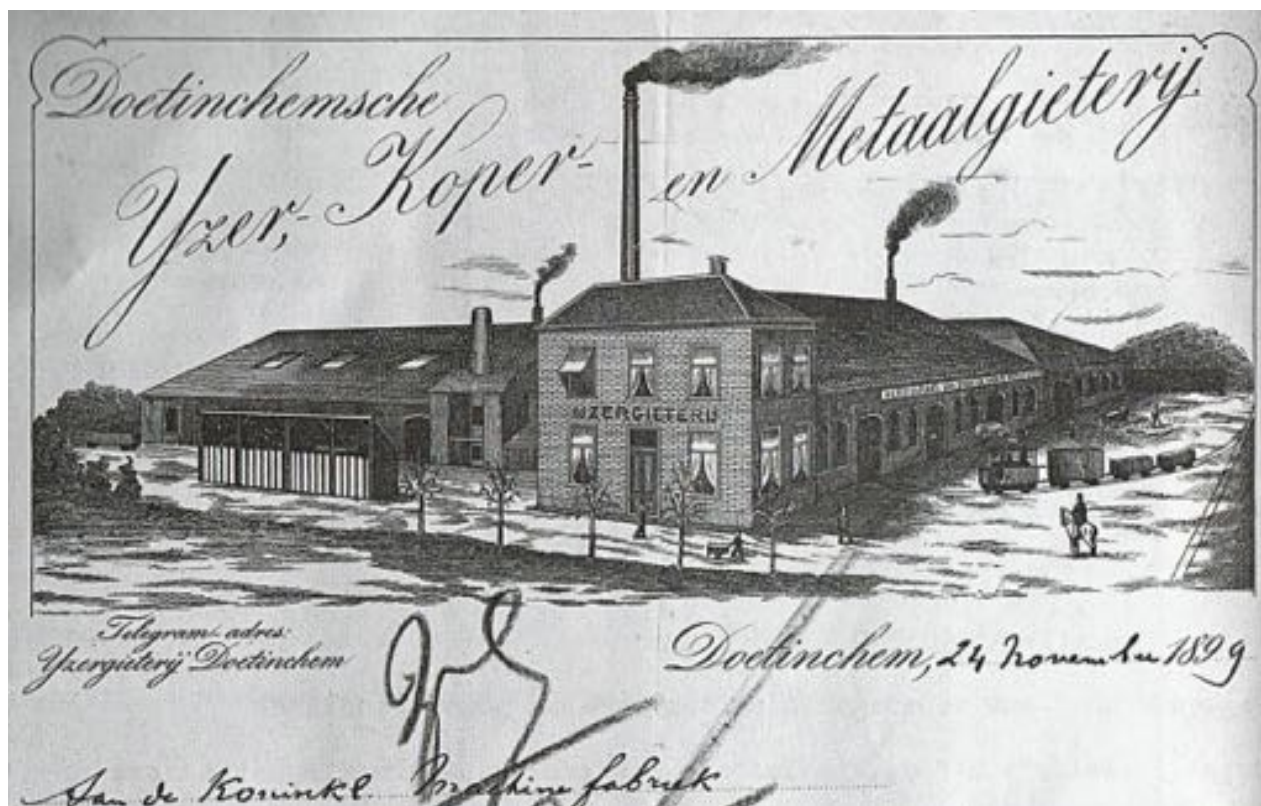 Doetinchemsche
Yzer,- Koper- en Metaalgieterij.
IJZERGIETERIJ
Telegram-adres:
Yzergieterij Doetinchem
Doetinchem, 24 November 1899
Aan de Koninkl. Machine fabriek